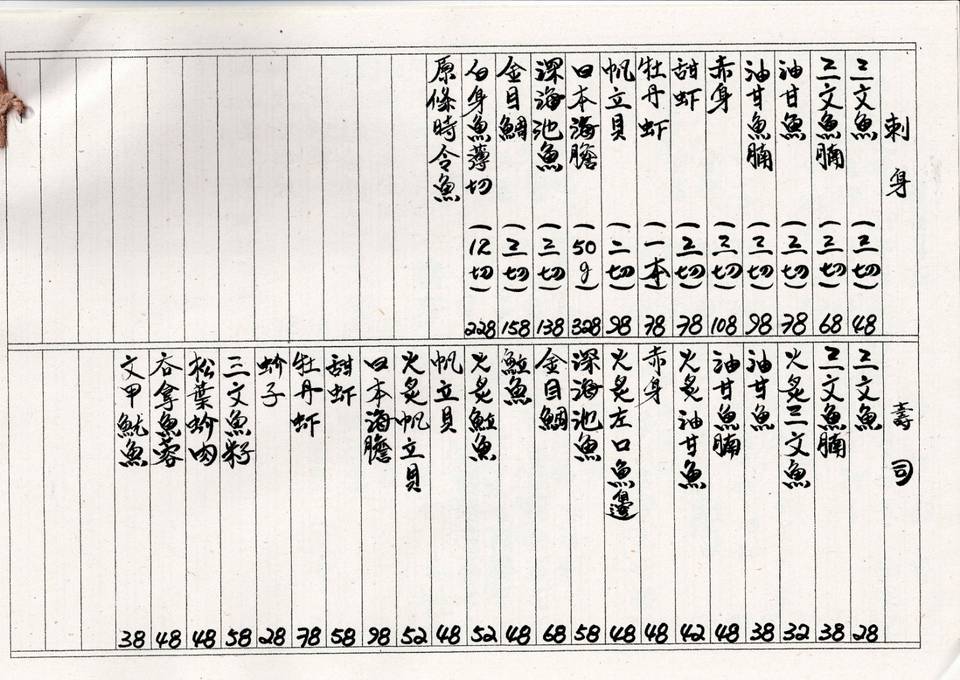 刺身
三文魚(三切)48
三文魚腩(三切)68
油甘魚(三切)78
油甘魚腩(三切)98
赤身(三切)108
甜虾(三切)78
牡丹虾(一本)78
帆立貝(二切)98
日本海膽(50g)328
深海池魚(三切)138
金目鯛(三切)158
白身魚薄切(12切)228
原條時令魚
壽司
三文魚 28
三文魚腩 38
火炙三文魚 32
油甘魚 38
油甘魚腩 48
火炙油甘魚 42
赤身 48
火炙左口魚邊 48
深海池魚 58
金目鯛 68
魚 48
火炙魚 52
帆立貝 48
火炙帆立貝 52
日本海膽 98
甜虾 58
牡丹虾 78
子 28
三文魚籽 58
松葉肉 48
吞拿魚蓉 48
文甲魷魚 38